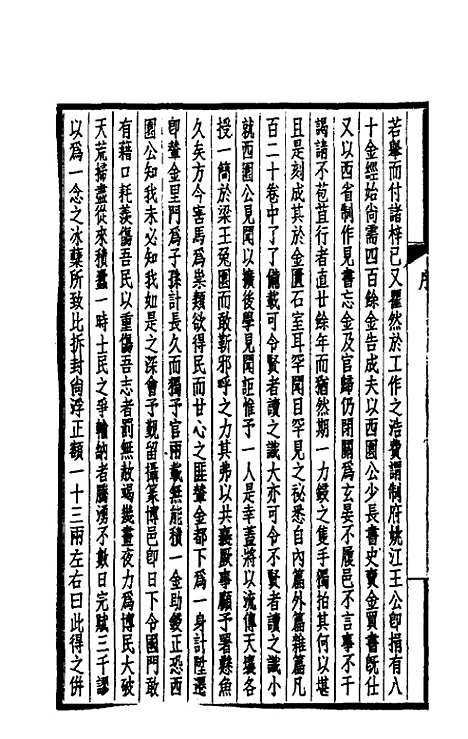 若舉而付諸梓已又瞿然於工作之浩費謂制府姚江王公即捐有入
十金經始尚需四百餘金告成夫以西園公少長書史賣金買書旣仕
又以西省制作見書忘金及官歸仍閉關爲玄晏不履邑不言事不干
謁請不苞苴行者直廿餘年而猶然期一力鋟之隻手獨拍其何以堪
且是刻成其於金匱石室耳罕聞目罕見之祕悉自內篇外篇雜篇凡
百二十卷中了了備載可令賢者讀之識大亦可令不賢者讀之識小
就西園公見聞以擴後學見聞詎惟予一人是幸蓋將以流傳天壤各
授一簡於梁王兔園而敢靳邪呼之力其弗以共襄厥事顧予署縣魚
久矣方今害馬爲祟類欲得民而甘心之匪輦金都下爲一身計陞遷
卽輦金里門爲子孫計長久而獨予官兩載無能積一金助鋟正恐西
園公知我未必知我如是之深會予覲留攝篆博邑卽日下令國門敢
有藉口耗羨傷吾民以重傷吾志者罰無赦竭幾晝夜力爲博民大破
天荒掃盡從來積蠹一時士民之爭輸納者騰湧不數日完賦三千謬
以爲一念之冰蘖所致比拆封尙浮正額一十三兩左右曰此得之併
序